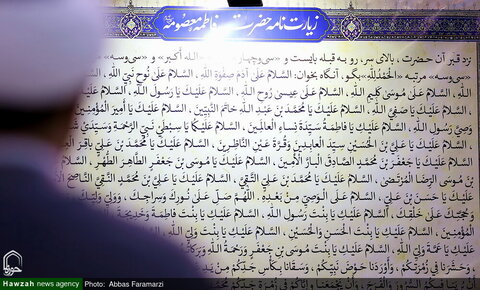 زیارت نامه حضرت فاطمه معصومه
نزد قبر آن حضرت، بالای سر، رو به قبله بایست و «سی‌وچهار مرتبه» «الله أکبر» و «سی‌وسه»
«سی‌وسه» مرتبه «الْحَمْدُلِلّه» بگو، آنگاه بخوان: السَّلامُ عَلَى آدَمَ صِفْوَةِ اللَّهِ، السَّلامُ عَلَى نُوحٍ نَبِيِّ اللَّهِ، السَّلامُ
السَّلامُ عَلَى مُوسَى كَلِيمِ اللَّهِ، السَّلامُ عَلَى عِيسَى رُوحِ اللَّهِ، السَّلامُ عَلَيْكَ يَا رَسُولَ اللَّهِ، السَّلامُ
السَّلامُ عَلَيْكَ يَا صَفِيَّ اللَّهِ، السَّلامُ عَلَيْكَ يَا مُحَمَّدَ بْنَ عَبْدِ اللَّهِ خَاتَمَ النَّبِيِّينَ، السَّلامُ عَلَيْكَ يَا أَمِيرَ الْمُؤْمِنِينَ
وَصِيَّ رَسُولِ اللَّهِ، السَّلامُ عَلَيْكِ يَا فَاطِمَةُ سَيِّدَةَ نِسَاءِ الْعَالَمِينَ، السَّلامُ عَلَيْكُمَا يَا سِبْطَيْ نَبِيِّ الرَّحْمَةِ وَسَيِّدَيْ
السَّلامُ عَلَيْكَ يَا عَلِيَّ بْنَ الْحُسَيْنِ سَيِّدَ الْعَابِدِينَ وَقُرَّةَ عَيْنِ النَّاظِرِينَ، السَّلامُ عَلَيْكَ يَا مُحَمَّدَ بْنَ عَلِيٍّ بَاقِرَ
السَّلامُ عَلَيْكَ يَا جَعْفَرَ بْنَ مُحَمَّدٍ الصَّادِقَ الْبَارَّ الْأَمِينَ، السَّلامُ عَلَيْكَ يَا مُوسَى بْنَ جَعْفَرٍ الطَّاهِرَ الطُّهْرَ، السَّلامُ
بْنَ مُوسَى الرِّضَا الْمُرْتَضَى، السَّلامُ عَلَيْكَ يَا مُحَمَّدَ بْنَ عَلِيٍّ التَّقِيَّ، السَّلامُ عَلَيْكَ يَا عَلِيَّ بْنَ مُحَمَّدٍ النَّقِيَّ النَّاصِحَ
عَلَيْكَ يَا حَسَنَ بْنَ عَلِيٍّ، السَّلامُ عَلَى الْوَصِيِّ مِنْ بَعْدِهِ، اللَّهُمَّ صَلِّ عَلَى نُورِكَ وَسِرَاجِكَ، وَوَلِيِّ وَلِيِّكَ
وَحُجَّتِكَ عَلَى خَلْقِكَ، السَّلامُ عَلَيْكِ يَا بِنْتَ رَسُولِ اللَّهِ، السَّلامُ عَلَيْكِ يَا بِنْتَ فَاطِمَةَ وَخَدِيجَةَ،
الْمُؤْمِنِينَ، السَّلامُ عَلَيْكِ يَا بِنْتَ الْحَسَنِ وَالْحُسَيْنِ، السَّلامُ عَلَيْكِ يَا بِنْتَ وَلِيِّ اللَّهِ، السَّلامُ
عَلَيْكِ يَا عَمَّةَ وَلِيِّ اللَّهِ، السَّلامُ عَلَيْكِ يَا بِنْتَ مُوسَى بْنِ جَعْفَرٍ وَرَحْمَةُ اللَّهِ وَبَرَكَاتُهُ
وَحَشَرَنَا فِي زُمْرَتِكُمْ، وَأَوْرَدَنَا حَوْضَ نَبِيِّكُمْ، وَسَقَانَا بِكَأْسِ جَدِّكُمْ مِنْ يَدِ
حوزه
Hawzah news agency | Photo: Abbas Faramarzi